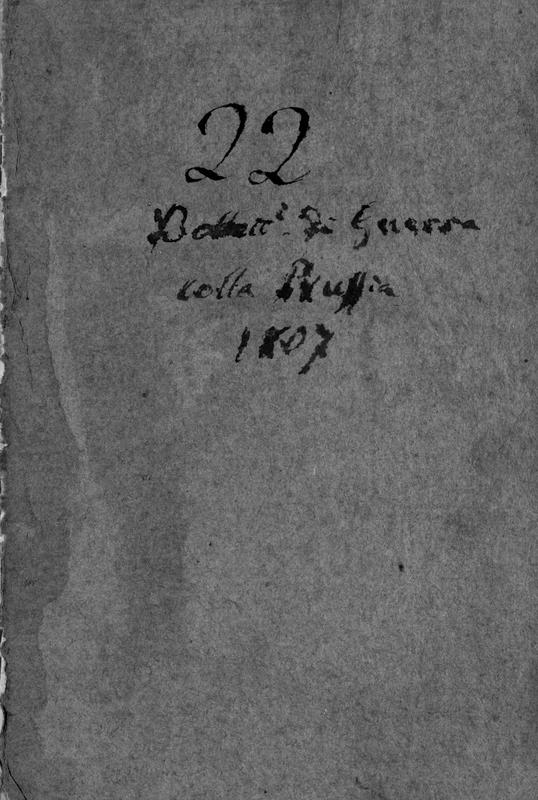 22
Bollett.i di Guerra
colla Prussia
1807